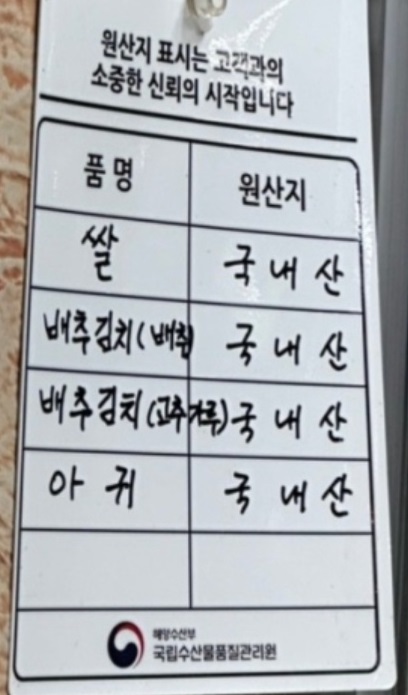 원산지 표시는 고객과의
소중한 신뢰의 시작입니다
품명 원산지
쌀 국내산
배추김치(배추) 국내산
배추김치(고추가루) 국내산
아귀 국내산
해양수산부
국립수산물품질관리원